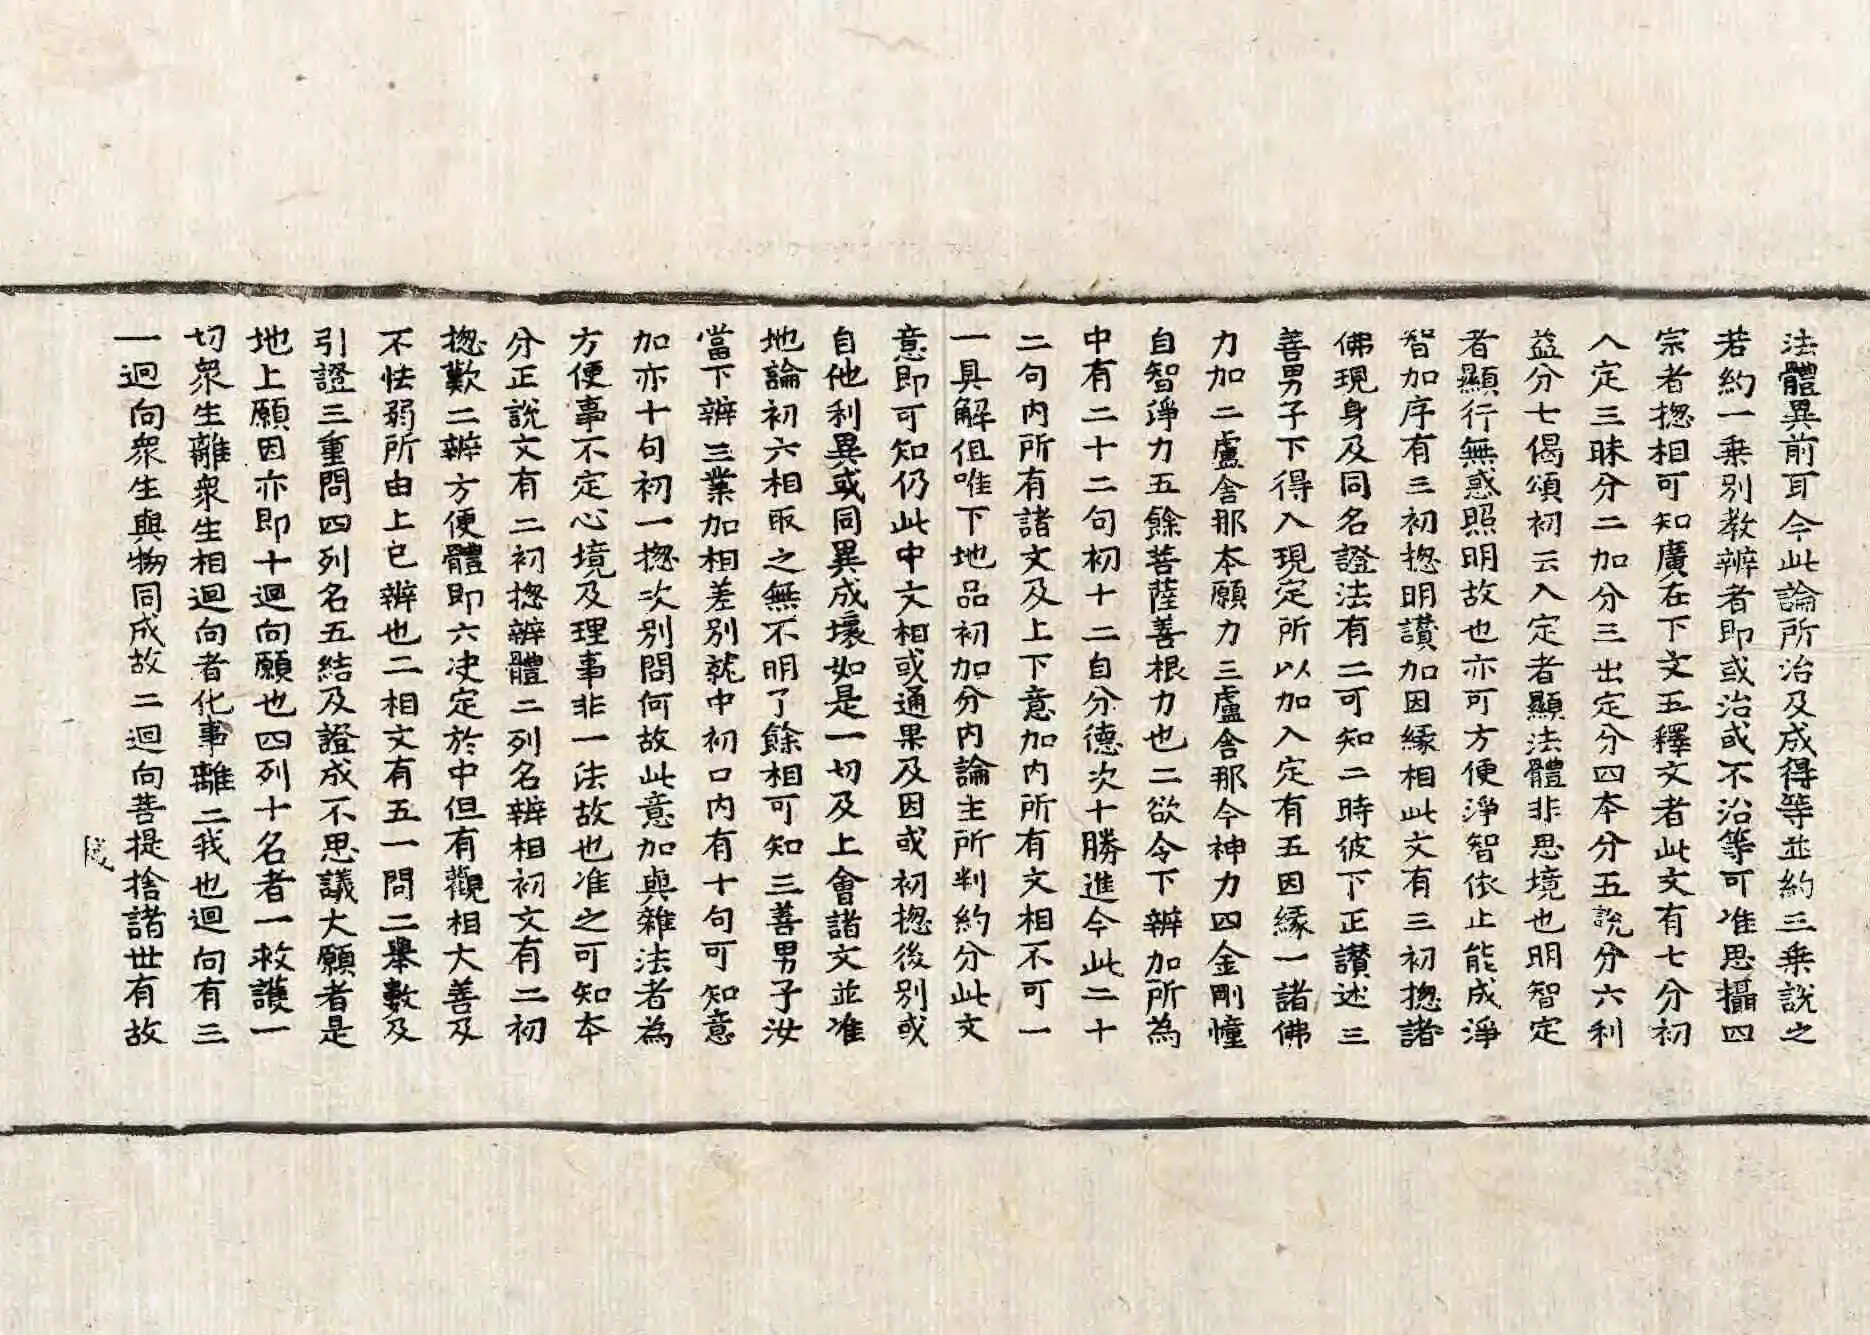 法體異前耳今此論所治及成得等並約三乗說之
若約一乗別教辨者即或治或不治等可准思攝四
宗者揔相可知廣在下文五釋文者此文有七分初
入定三昧分二加分三出定分四本分五說分六利
益分七偈頌初云入定者顯法體非思境也明智定
者顯行無惑照明故也亦可方便淨智依止能成淨
智加序有三初揔明讃加因緣相此文有三初揔諸
佛現身及同名證法有二可知二時彼下正讃述三
善男子下得入現定所以加入定有五因緣一諸佛
力加二盧舍那本願力三盧舍那今神力四金剛幢
自智淨力五餘菩薩善根力也二欲令下辨加所為
中有二十二句初十二自分德次十勝進今此二十
二句内所有諸文及上下意加内所有文相不可一
一具解但唯下地品初加分内論主所判約分此文
意即可知仍此中文相或通果及因或初揔後別或
自他利異或同異成壞如是一切及上會諸文並准
地論初六相取之無不明了餘相可知三善男子汝
當下辨三業加相差別就中初口内有十句可知意
加亦十句初一揔次別問何故此意加與雜法者為
方便事不定心境及理事非一法故也准之可知本
分正說文有二初揔辨體二列名辨相初文有二初
揔歎二辨方便體即六决定於中但有觀相大善及
不怯弱所由上已辨也二相文有五一問二舉數及
引證三重問四列名五結及證成不思議大願者是
地上願因亦即十迴向願也四列十名者一救護一
切衆生離衆生相迴向者化事離二我也迴向有三
一迴向衆生與物同成故二迴向菩提捨諸世有故